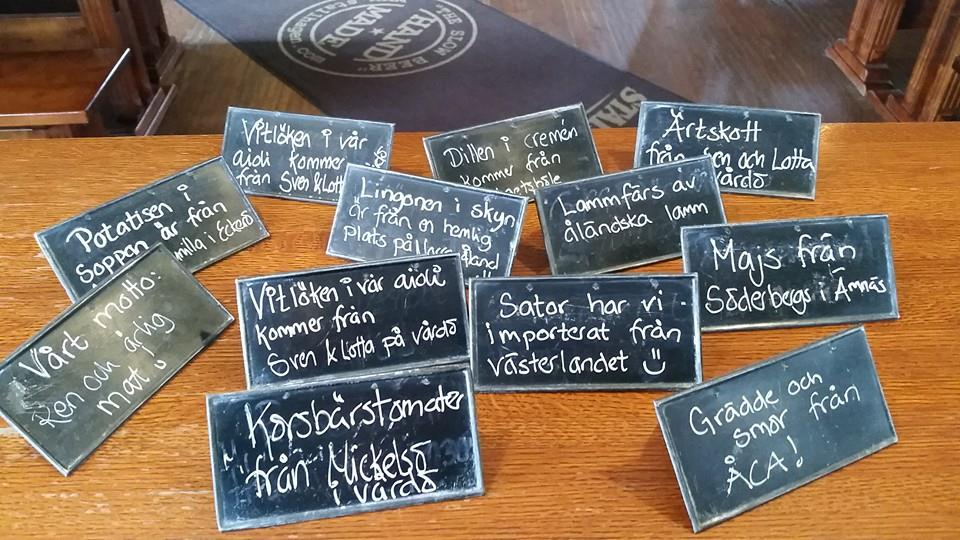 THE SLOW BEER"
HAND
MADE
STAL
Vitlöken i vår
aioli kommer
från Sven & Lotta
Dillen i cremén
kommer från
Ärtskott
från Sven och Lotta
Vårdö
Potatisen i
Soppan är från
milla i Eckerö
Lingonen i skyn
är från en hemlig
plats på Åland
Lammfärs av
åländska lamm
Majs från
Söderbergs i Ämnäs
Vårt motto:
Ren och ärlig
mat!
Vitlöken i vår aioli
kommer från
Sven & Lotta på Vårdö
Sator har vi
importerat från
västerlandet
Körsbärstomater
från Mickelsö
i vårdö
Grädde och
smör från
ÅCA!